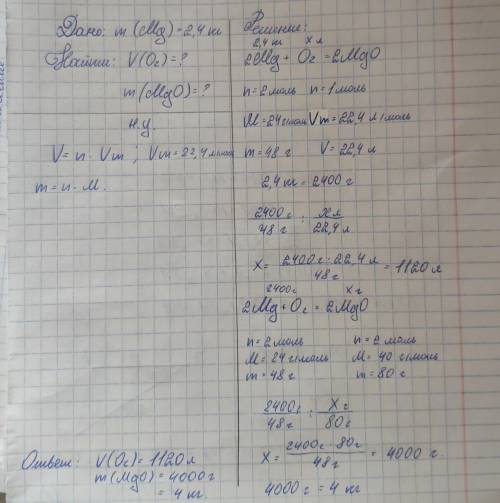 Дано: m(Mg)=2,4 кг
Найти: V(O₂)=?
m(MgO)=?
н.у.
V=n·Vm; Vm=22,4 л/моль
m=n·M.
Решение:
2,4 кг x л
2Mg+O₂=2MgO
n=2моль n=1моль
M=24г/моль Vm=22,4 л/моль
m=48г V=22,4л
2,4 кг=2400г
2400г/48г : xл/22,4л
x= 2400г·22,4л/48г =1120л
2400г xг
2Mg+O₂=2MgO
n=2моль n=2моль
M=24г/моль M=40г/моль
m=48г m=80г
2400г/48г : xг/80г
X= 2400г·80г/48г = 4000г.
4000г=4 кг
Ответ: V(O₂)=1120л
m(MgO)=4000г
=4 кг.